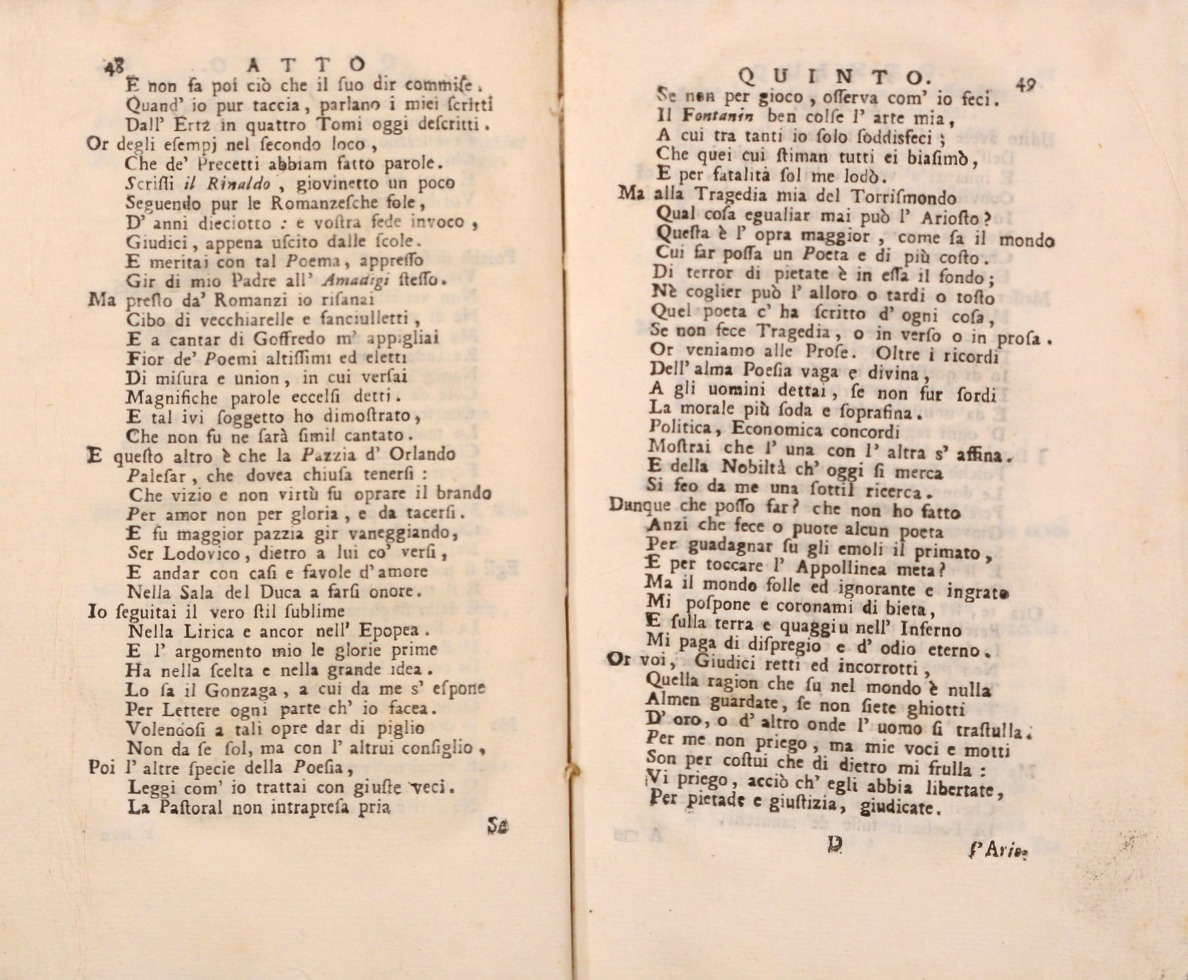 48 ATTO
E non ſa poi ciò che il ſuo dir commiſe.
Quand' io pur taccia, parlano i miei ſcritti
Dall' Ertz in quattro Tomi oggi deſcritti.
Or degli eſempj nel ſecondo loco,
Che de' Precetti abbiam fatto parole.
Scriſſi il Rinaldo, giovinetto un poco
Seguendo pur le Romanzeſche fole,
D' anni dieciotto: e voſtra fede invoco,
Giudici, appena uſcito dalle ſcole.
E meritai con tal Poema, appreſſo
Gir di mio Padre all' Amadigi ſteſſo.
Ma preſto da' Romanzi io riſanai
Cibo di vecchiarelle e fanciulletti,
E a cantar di Goffredo m' appigliai
Fior de' Poemi altiſſimi ed eletti
Di miſura e union, in cui verſai
Magnifiche parole eccelſi detti.
E tal ivi ſoggetto ho dimoſtrato,
Che non fu ne ſarà ſimil cantato.
E queſto altro è che la Pazzia d' Orlando
Paleſar, che dovea chiuſa tenerſi:
Che vizio e non virtù fu oprare il brando
Per amor non per gloria, e da tacerſi.
E fu maggior pazzia gir vaneggiando,
Ser Lodovico, dietro a lui co' verſi,
E andar con caſi e favole d'amore
Nella Sala del Duca a farſi onore.
Io ſeguitai il vero ſtil ſublime
Nella Lirica e ancor nell' Epopea.
E l' argomento mio le glorie prime
Ha nella ſcelta e nella grande idea.
Lo ſa il Gonzaga, a cui da me s' eſpone
Per Lettere ogni parte ch' io facea.
Volendoſi a tali opre dar di piglio
Non da ſe ſol, ma con l' altrui conſiglio,
Poi l' altre ſpecie della Poeſia,
Leggi com' io trattai con giuſte veci.
La Paſtoral non intrapreſa pria
Se
QUINTO. 49
Se non per gioco, oſſerva com' io feci.
Il Fontanin ben colſe l' arte mia,
A cui tra tanti io ſolo ſoddisfeci;
Che quei cui ſtiman tutti ei biaſimò,
E per fatalità ſol me lodò.
Ma alla Tragedia mia del Torriſmondo
Qual coſa egualiar mai può l' Arioſto?
Queſta è l' opra maggior, come ſa il mondo
Cui far poſſa un Poeta e di più coſto.
Di terror di pietate è in eſſa il fondo;
Nè coglier può l' alloro o tardi o toſto
Quel poeta c' ha ſcritto d' ogni coſa,
Se non fece Tragedia, o in verſo o in proſa.
Or veniamo alle Proſe. Oltre i ricordi
Dell' alma Poeſia vaga e divina,
A gli uomini dettai, ſe non fur ſordi
La morale più ſoda e ſoprafina.
Politica, Economica concordi
Moſtrai che l' una con l' altra s' affina.
E della Nobiltà ch' oggi ſi merca
Si feo da me una ſottil ricerca.
Dunque che poſſo far? che non ho fatto
Anzi che fece o puote alcun poeta
Per guadagnar ſu gli emoli il primato,
E per toccare l' Appollinea meta?
Ma il mondo folle ed ignorante e ingrato
Mi poſpone e coronami di bieta,
E ſulla terra e quaggiu nell' Inferno
Mi paga di diſpregio e d' odio eterno.
Or voi, Giudici retti ed incorrotti,
Quella ragion che ſu nel mondo è nulla
Almen guardate, ſe non ſiete ghiotti
D' oro, o d' altro onde l' uomo ſi traſtulla.
Per me non priego, ma mie voci e motti
Son per coſtui che di dietro mi frulla:
Vi priego, acciò ch' egli abbia libertate,
Per pietade e giuſtizia, giudicate.
D ſ'Ario-